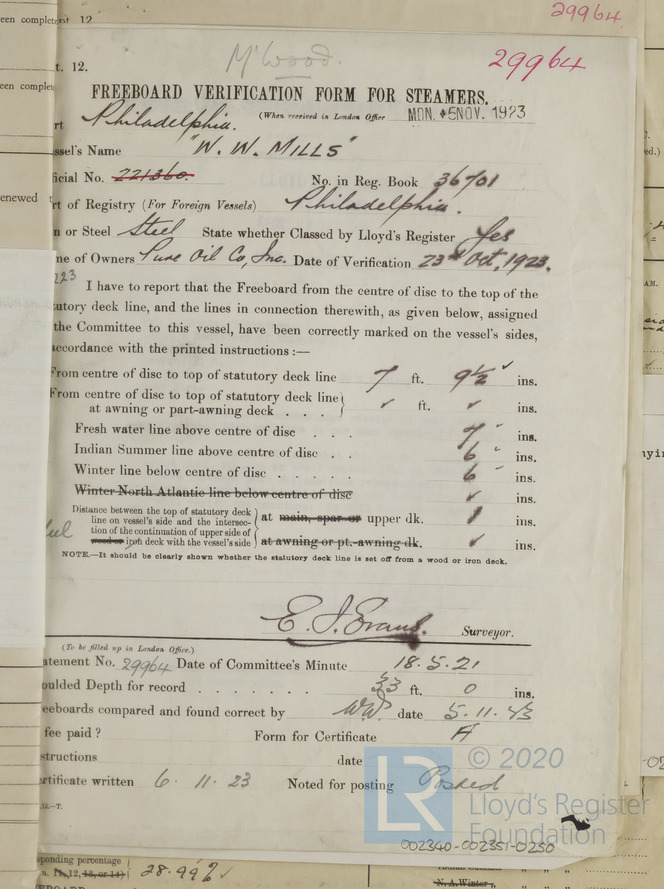 29964
een complet t 12
t. 12.
McWood.
29964
een complet
FREEBOARD VERIFICATION FORM FOR STEAMERS.
rt Philadelphia. (When received in London Office MON. 5 NOV. 1923
ssel's Name "W. W. MILLS"
ficial No. 221360. No. in Reg. Book 36701
rt of Registry (For Foreign Vessels) Philadelphia.
n or Steel Steel State whether Classed by Lloyd's Register Yes
ne of Owners Pure Oil Co, Inc. Date of Verification 23rd Oct, 1923.
enewed
223
I have to report that the Freeboard from the centre of disc to the top of the
tutory deck line, and the lines in connection therewith, as given below, assigned
the Committee to this vessel, have been correctly marked on the vessel's sides,
accordance with the printed instructions :—
From centre of disc to top of statutory deck line 7 ft. 9½ ✓ ins.
From centre of disc to top of statutory deck line
at awning or part-awning deck . . . ✓ ft. ✓ ins.
Fresh water line above centre of disc . . . 7 ✓ ins.
Indian Summer line above centre of disc . . 6 ✓ ins.
Winter line below centre of disc . . . . . 6 ✓ ins.
Winter North Atlantic line below centre of disc ✓ ins.
Distance between the top of statutory deck
line on vessel's side and the intersec- at main, spar or upper dk. ins.
tion of the continuation of upper side of
wood or iron deck with the vessel's side at awning or pt.-awning dk. ✓ ins.
eel
NOTE.—It should be clearly shown whether the statutory deck line is set off from a wood or iron deck.
E. J. Evans. Surveyor.
(To be filled up in London Office.)
atement No. 29964 Date of Committee's Minute 18.5.21
oulded Depth for record . . . . . . . 33 ft. 0 ins.
eeboards compared and found correct by WW. date 5.11.23
fee paid ? Form for Certificate A
structions date
ertificate written 6. 11. 23 Noted for posting Posted
© 2020
Lloyd's Register
Foundation
LR
002340-002351-0250
sponding percentage
a. 11, 12, 13, or 14) 28.99%
EBOARD
N. A. Winter,